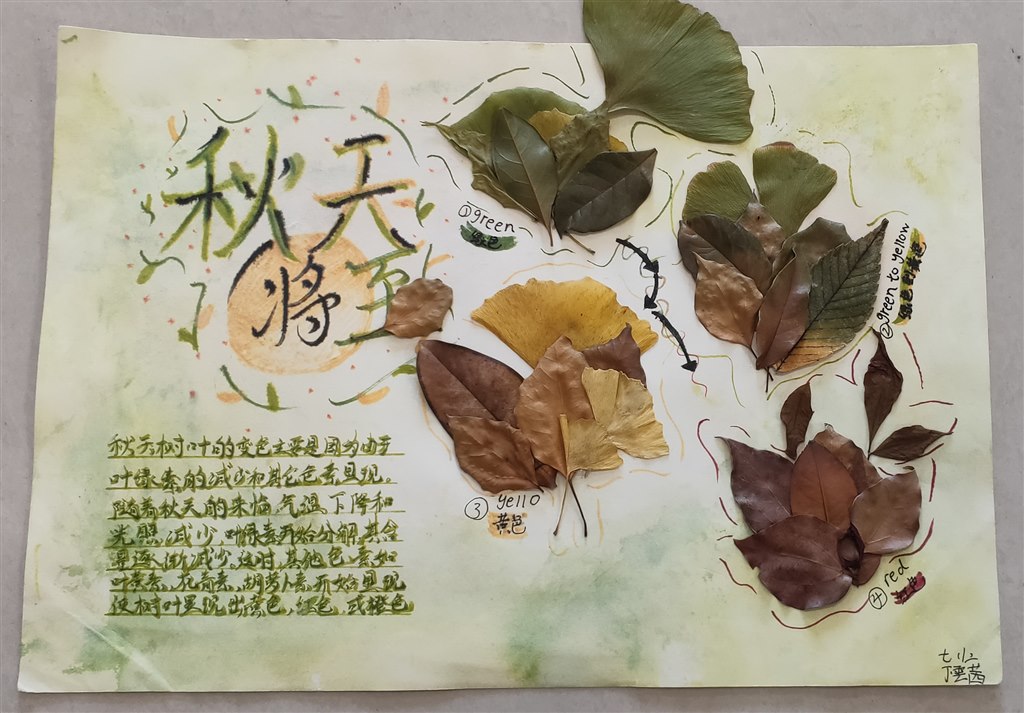 秋天
将至
①green
绿色
②green to yellow
绿色到黄色
③ yello
黄色
④ red
红色
秋天树叶的变色主要是因为由于
叶绿素的减少和其它色素显现。
随着秋天的来临,气温下降和
光照减少,叶绿素开始分解,其含
量逐渐减少。这时,其他色素如
叶黄素、花青素、胡萝卜素开始显现
使树叶呈现出黄色,红色,或橙色